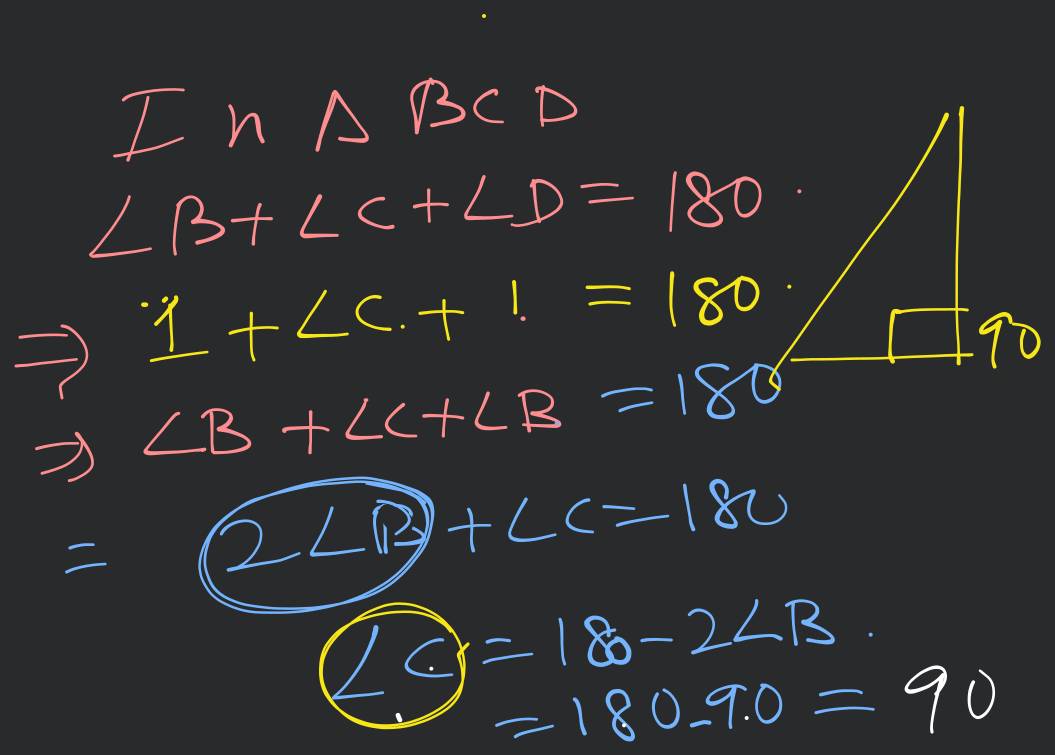 In Δ BCD
∠B+∠C+∠D=180
⇒ 1 + ∠C. + ! = 180
90
⇒ ∠B +∠C+∠B =180
= 2∠B +∠C=180
∠C =180-2∠B.
=180-90 = 90